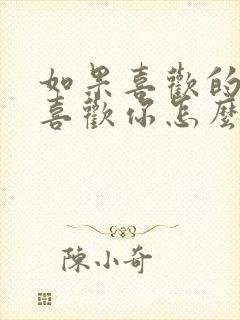 如果喜歡的
喜歡你怎麼
陳小奇